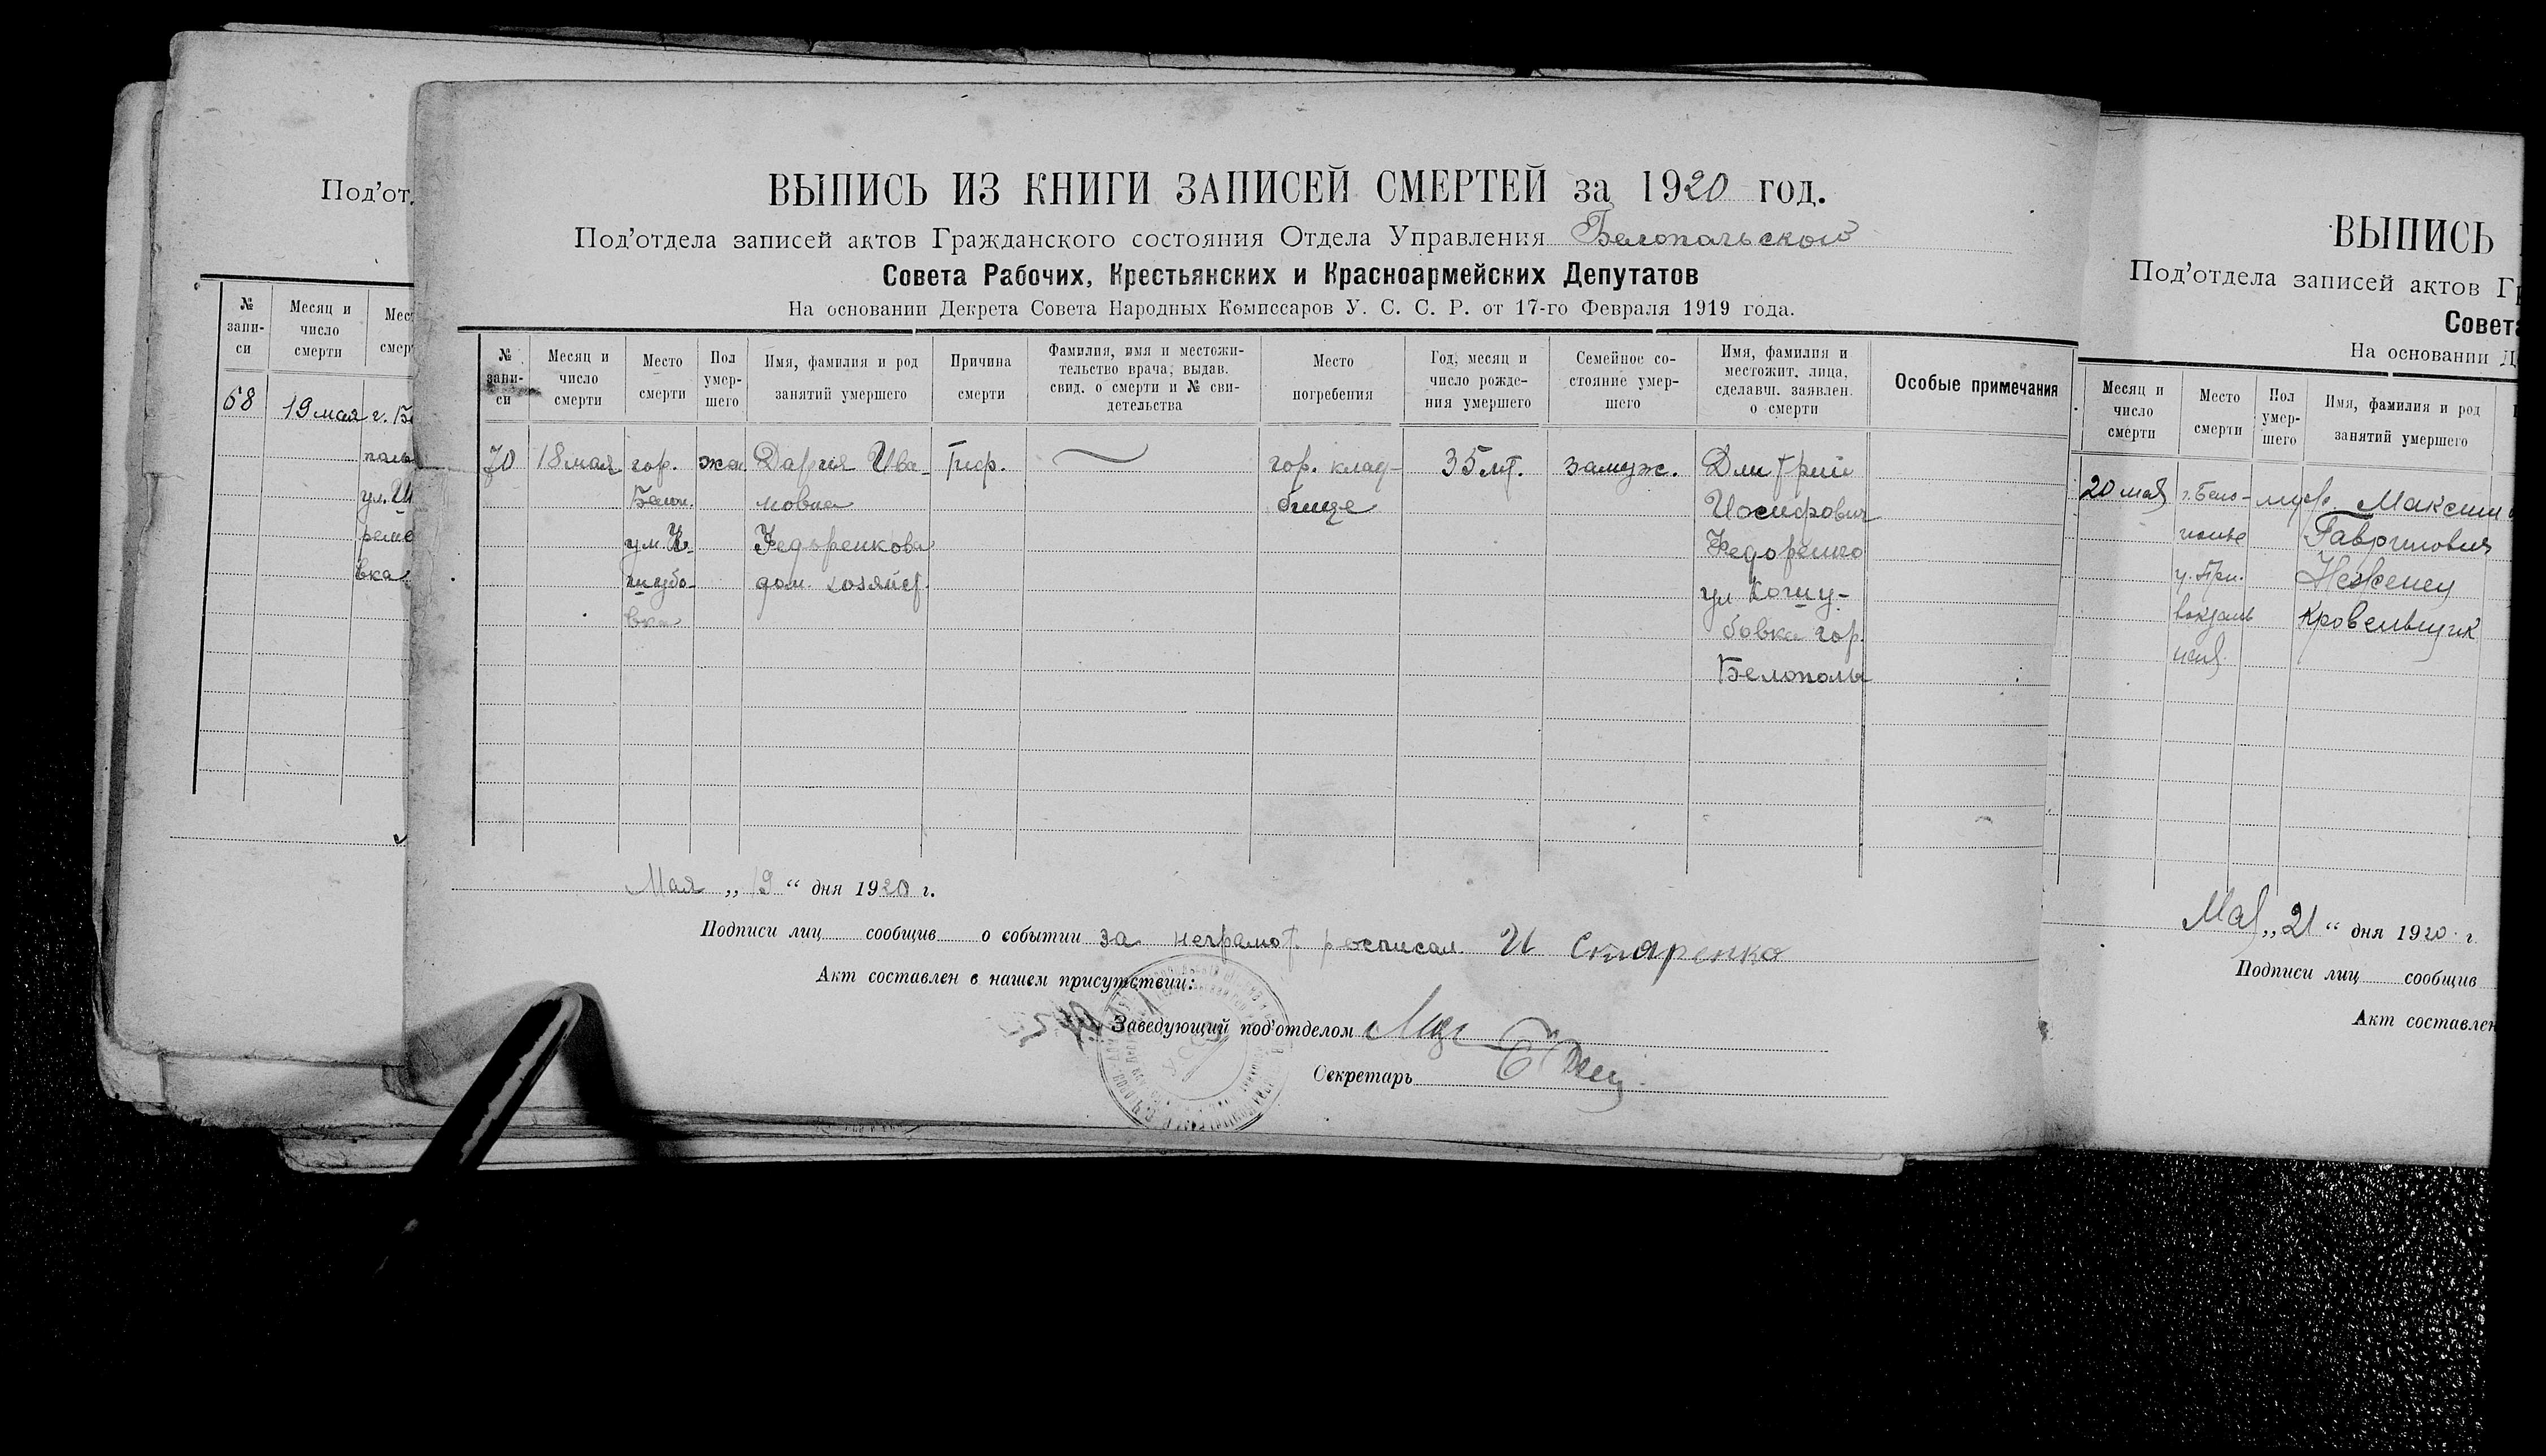 Под'от
№ запи- си
Месяц и число смерти
Мес смер
68
19 мая
г. Бе
поль
ул. Ш
реме
вка
ВЫПИСЬ ИЗ КНИГИ ЗАПИСЕЙ СМЕРТЕЙ за 1920 год.
Под'отдела записей актов Гражданского состояния Отдела Управления Белопольского
Совета Рабочих, Крестьянских и Красноармейских Депутатов
На основании Декрета Совета Народных Комиссаров У. С. С. Р. от 17-го Февраля 1919 года.
№ запи- си
Месяц и число смерти
Место смерти
Пол умер- шего
Имя, фамилия и род занятий умершего
Причина смерти
Фамилия, имя и местожи- тельство врача, выдав. свид. о смерти и № сви- детельства
Место погребения
Год, месяц и число рожде- ния умершего
Семейное со- стояние умер- шего
Имя, фамилия и местожит. лица, сделавш. заявлен. о смерти
Особые примечания
70
18 мая
гор.
Белоп.
жен
Дария Ива-
новна
Федоренкова
дом. хозяйст.
Тиф.
гор. клад-
бище
35 лет.
замуж.
Дмитрий
Иосифович
Федоренко
ул Кошу-
бовка гор.
Белополье
Мая „ 19 “ дня 1920 г.
Подписи лиц сообщив о событии за неграмот. росписал И Скляренко
Акт составлен в нашем присутствии:
Заведующий под'отделом
Секретарь
ВЫПИСЬ
Под'отдела записей актов Гр
Совета
На основании Д
Месяц и число смерти
Место смерти
Пол умер- шего
Имя, фамилия и род занятий умершего
20 мая
г. Бело-
полье
у. При-
вокзаль
ная
муж
Максим
Гаврилович
Неженец
Кровельщик
Мая „ 21 “ дня 1920 г.
Подписи лиц сообщив
Акт составлен